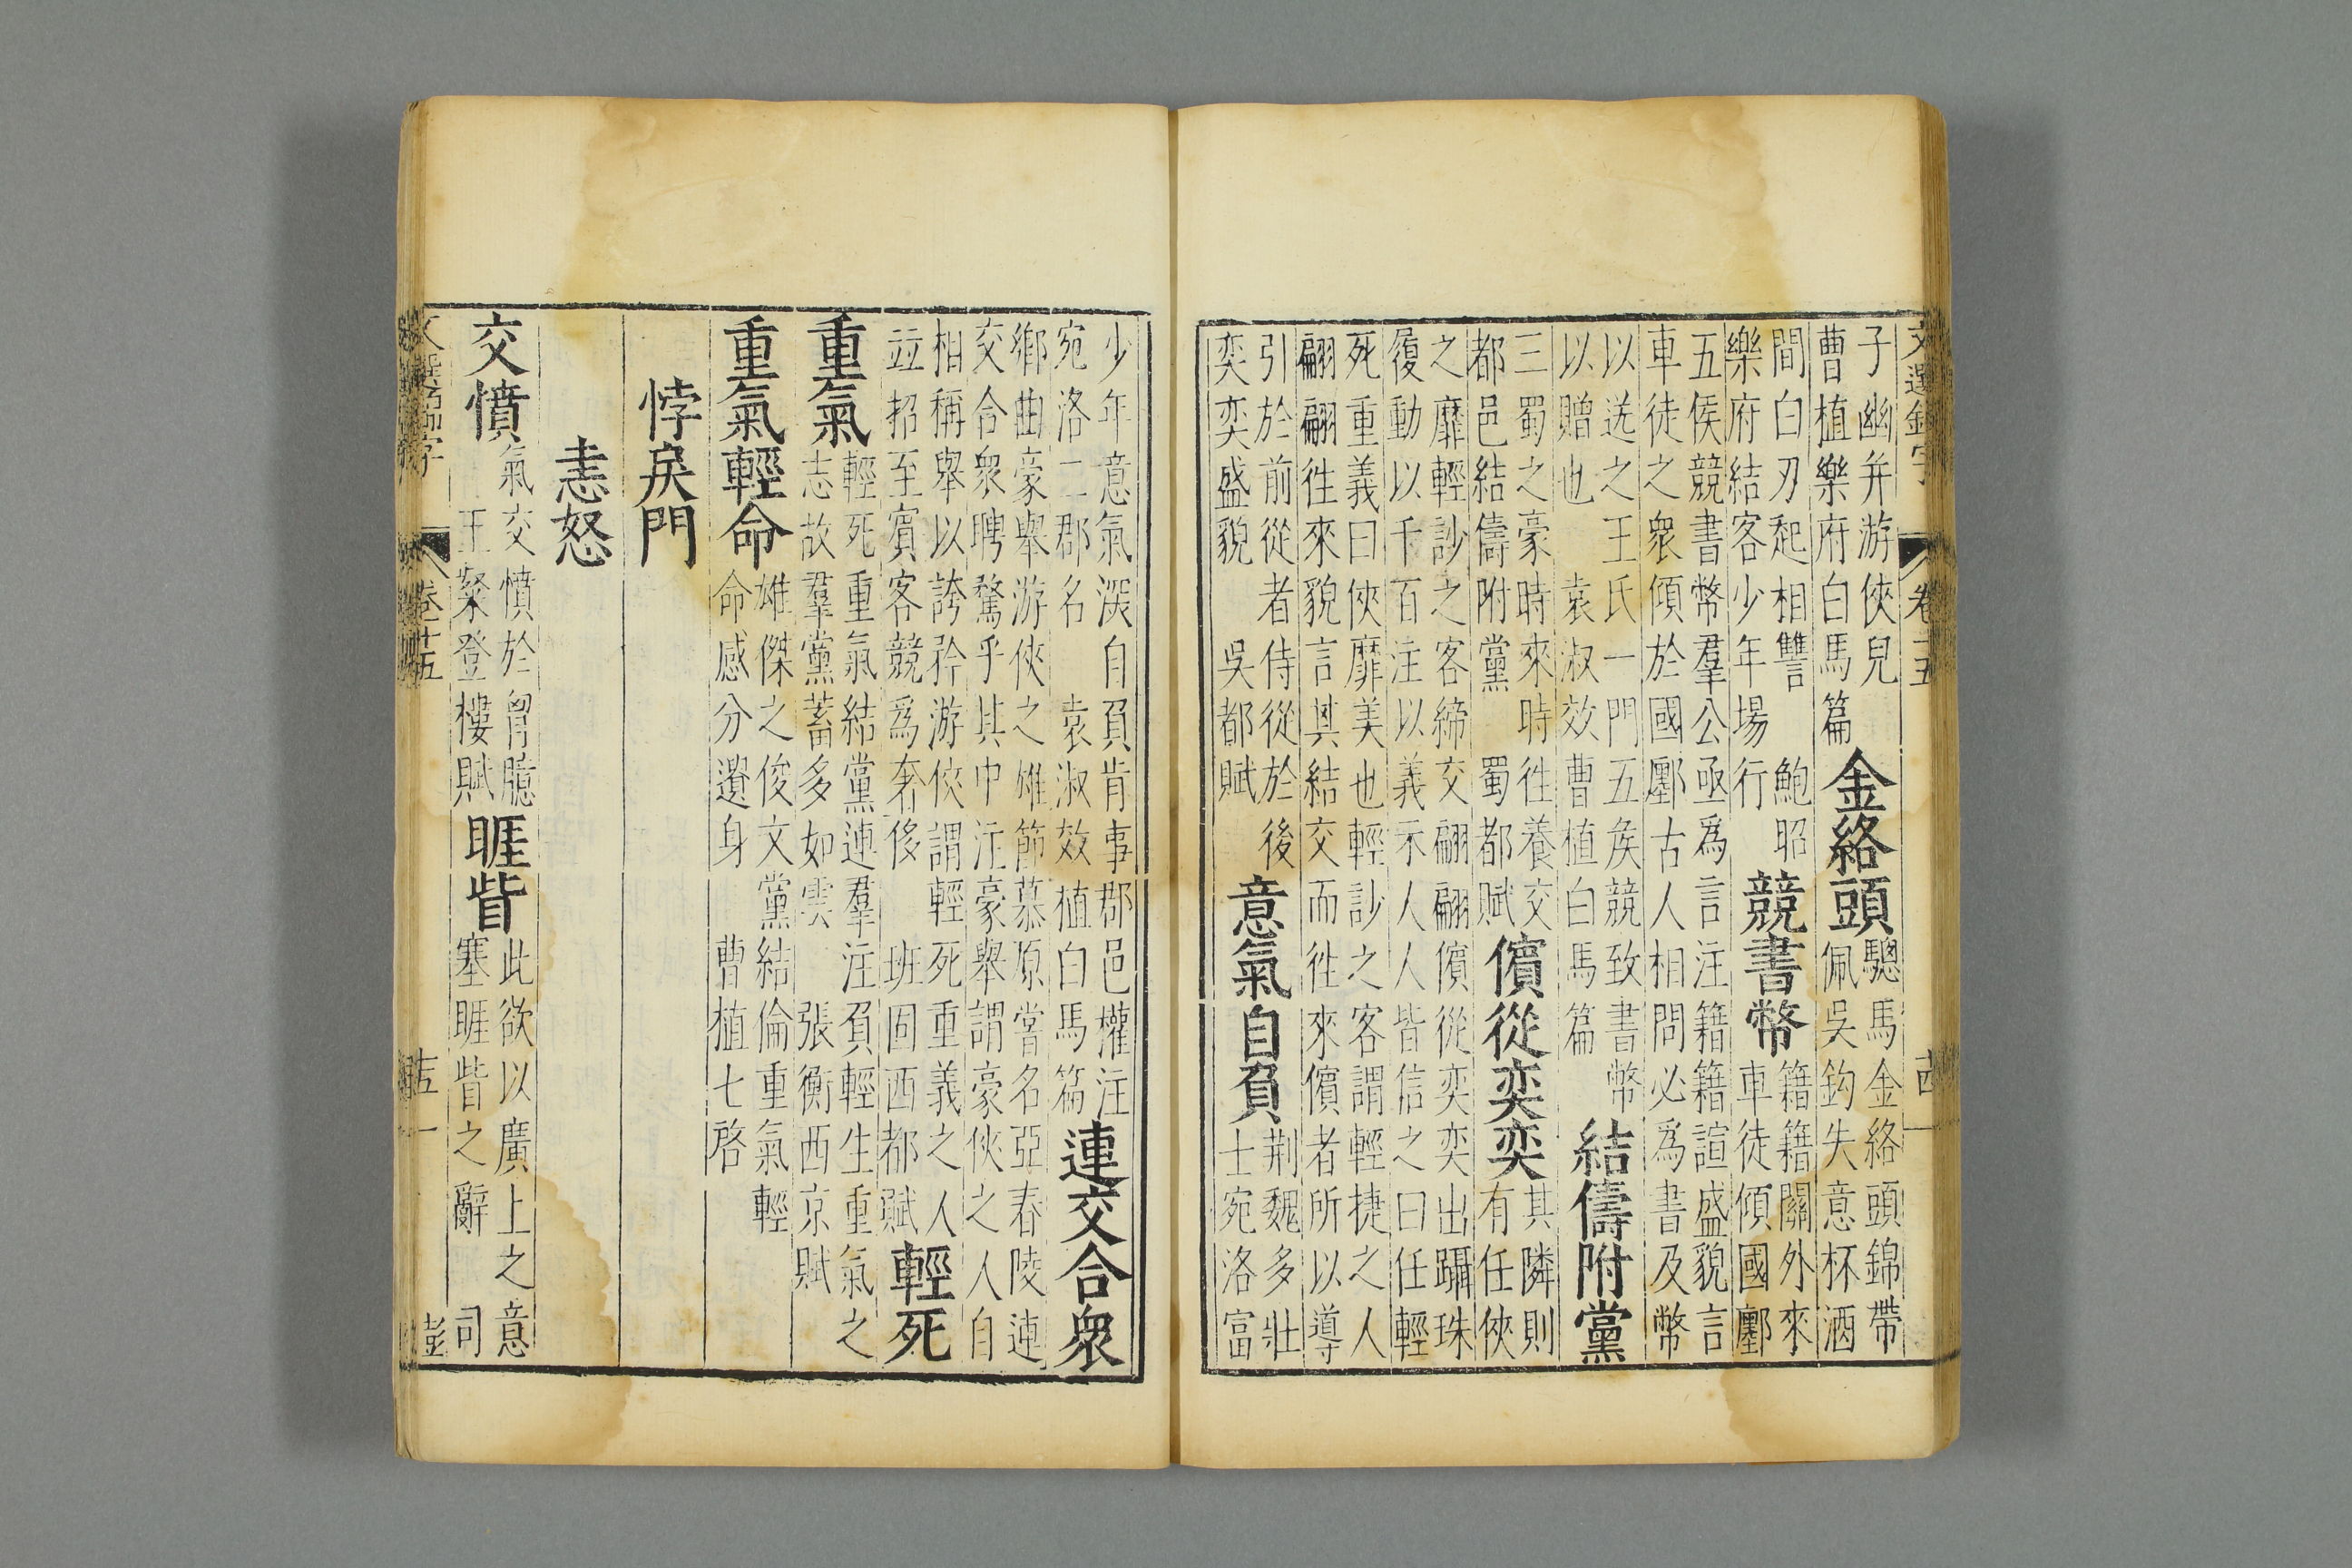 文選錦字 卷十五 十四
子幽并游俠兒
曹植樂府白馬篇
金絡頭
驄馬金絡頭錦帶
佩吳鈎失意杯酒
間白刃起相讐 鮑昭
樂府結客少年場行
競書幣
籍籍關外來
車徒傾國鄽
五侯競書幣羣公亟爲言注籍籍諠盛貌言
車徒之衆傾於國鄽古人相問必爲書及幣
以送之王氏一門五侯競致書幣
以贈也 袁淑效曹植白馬篇
結儔附黨
三蜀之豪時來時徃養交
都邑結儔附黨 蜀都賦
儐從奕奕
其隣則
有任俠
之靡輕訬之客締交翩翩儐從奕奕出躡珠
履動以千百注以義示人人皆信之曰任輕
死重義曰俠靡美也輕訬之客謂輕捷之人
翩翩徃來貌言其結交而徃來儐者所以導
引於前從者侍從於後
奕奕盛貌 吳都賦
意氣自負
荆魏多壯
士宛洛富
少年意氣深自負肯事郡邑權注
宛洛二郡名 袁淑效植白馬篇
連交合衆
鄉曲豪舉游俠之雄節慕原嘗名亞春陵連
交合衆聘騖乎其中注豪舉謂豪俠之人自
相稱舉以誇矜游俠謂輕死重義之人
竝招至賓客競爲奢侈 班固西都賦
輕死
重氣
輕死重氣結黨連羣注負輕生重氣之
志故羣黨蓄多如雲 張衡西京賦
重氣輕命
雄傑之俊文黨結倫重氣輕
命感分遺身 曹植七啓
悖戾門
恚怒
交憤
氣交憤於胷臆
王粲登樓賦
睚眥
此欲以廣上之意
塞睚眥之辭 司
文選錦字 卷十五 十五